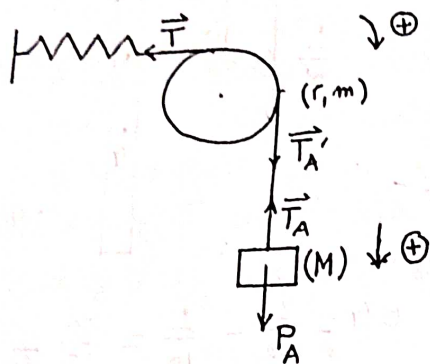 T⃗
⊕
(r, m)
T⃗_A'
T⃗_A
(M)
⊕
P_A